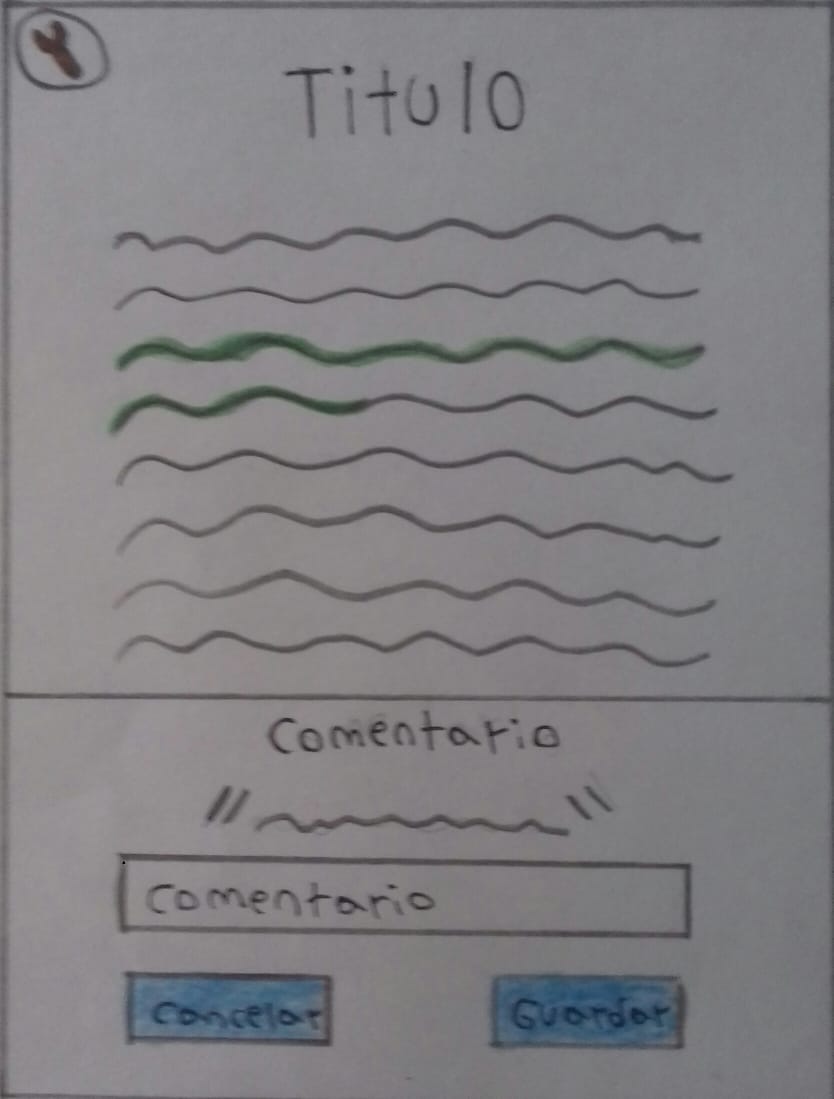 Titulo
Comentario
"          "
Comentario
Cancelar
Guardar